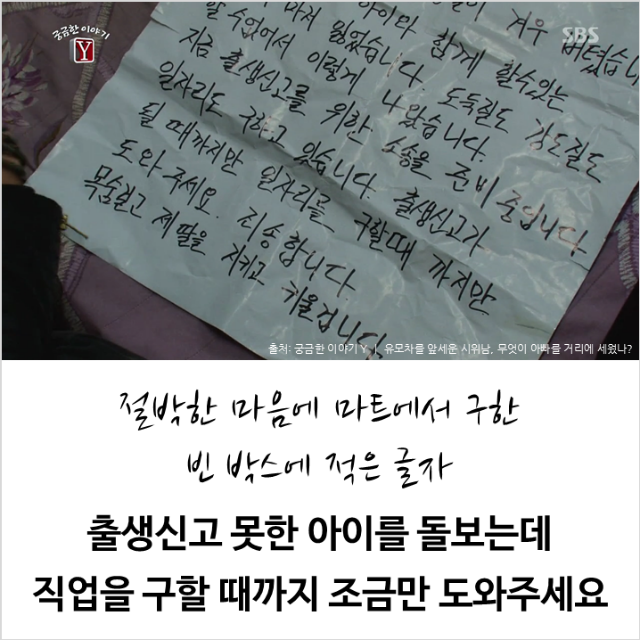 궁금한 이야기
Y
SBS
겨우 버텼습니
마저 잃었습니다. 아이와 함께 할수있는
할 수없어서 이렇게 나왔습니다. 도둑질도 강도질도
지금 출생신고를 위한 소송을 준비중입니다.
일자리도 구하고 있습니다. 출생신고가
될 때까지만 일자리를 구할때 까지만
도와주세요. 죄송합니다.
목숨걸고 제 딸을 지키고 키울겁니다
출처: 궁금한 이야기 Y | 유모차를 앞세운 시위남, 무엇이 아빠를 거리에 세웠나?
절박한 마음에 마트에서 구한
빈 박스에 적은 글자
출생신고 못한 아이를 돌보는데
직업을 구할 때까지 조금만 도와주세요